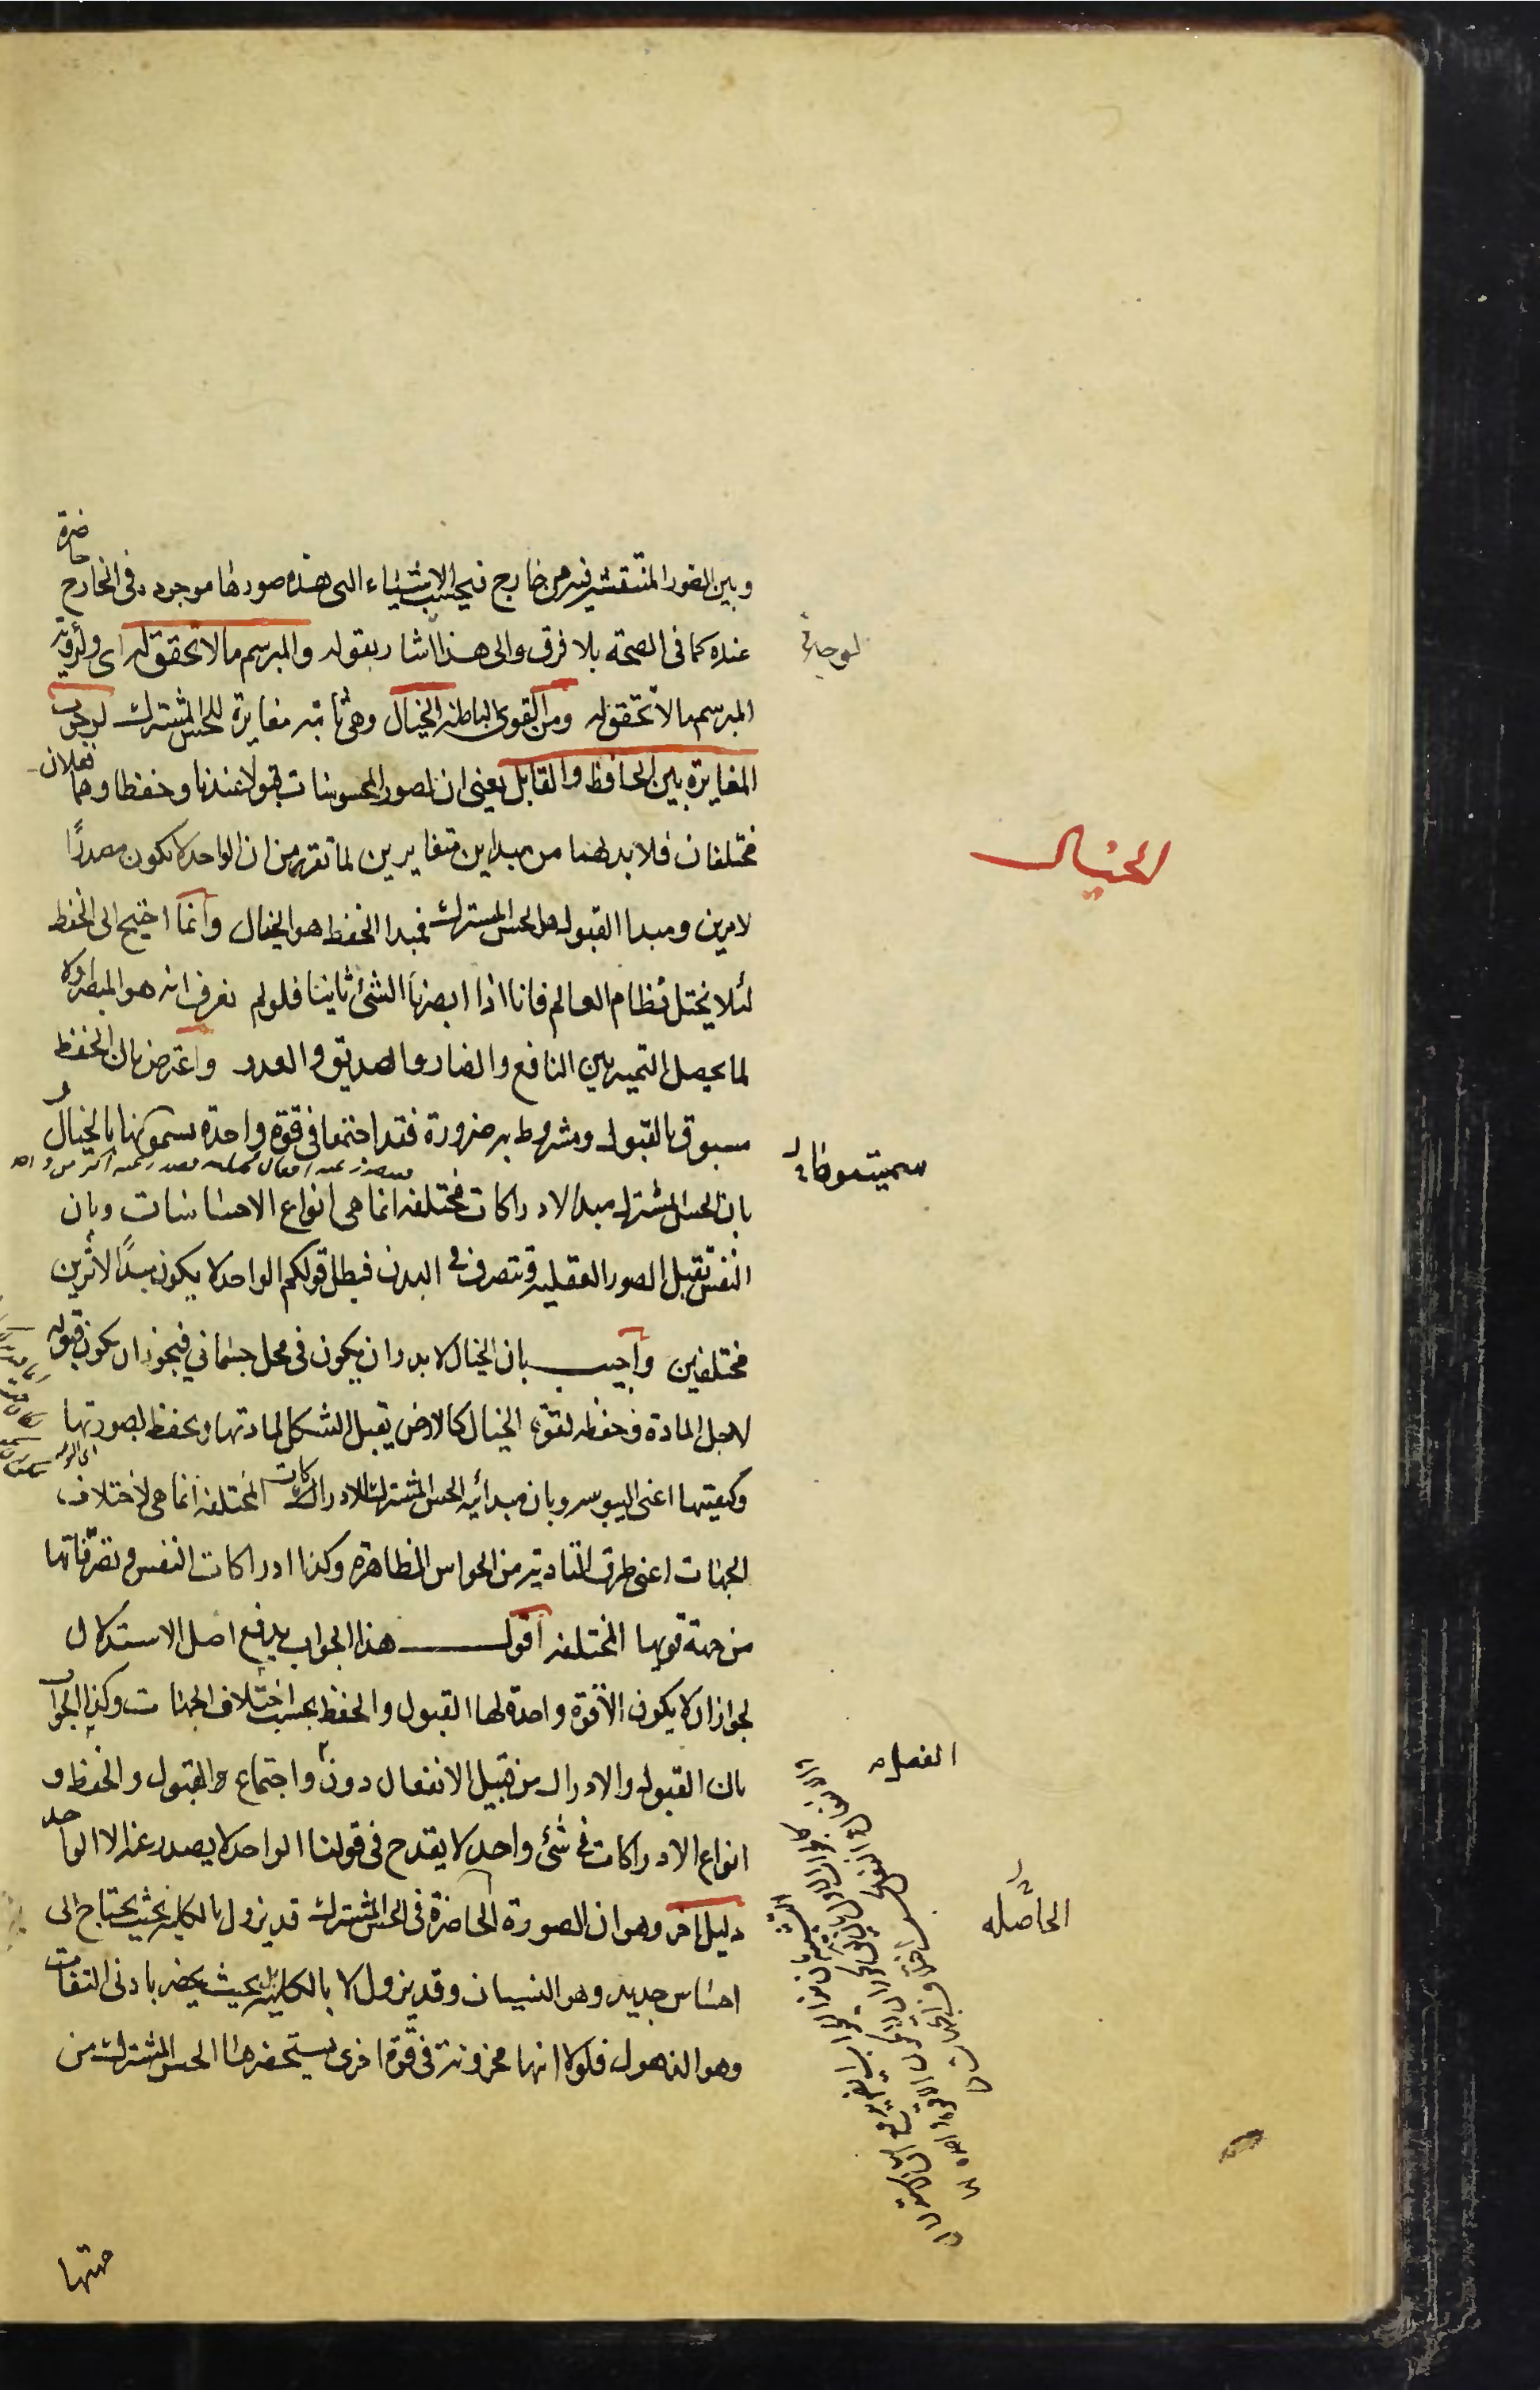 وبين الصور المنتقشة فيه من خارج فيحسب الاشياء التى هذه صورها موجودة فى الخارج حاضرة
عنده كما فى الصحة بلا فرق والى هذا اشار بقوله والمبرسم ما لا تحقق له اى ولرؤية
المبرسم ما لا تحقق له ومن القوى الباطنة الخيال وهى ثابتة مغايرة للحس المشترك لوجوب
المغايرة بين الحافظ والقابل يعنى ان لصور المحسوسات قبولا عندنا وحفظا وهما فعلان
مختلفان فلا بد لهما من مبداين متغايرين لما تقرر من ان الواحد لا يكون مصدرًا
لامرين ومبدا القبول هو الحس المشترك فمبدا الحفظ هو الخيال وانما احتيج الى الحفظ
لئلا يختل نظام العالم فانا اذا ابصرنا الشئ ثانيا فلو لم نعرف انه هو المبصر اولا
لما يحصل التميز بين النافع والضار والصديق والعدو واعترض بان الحفظ
مسبوق بالقبول ومشروط به ضرورة فقد اجتمعا فى قوة واحدة سموتموها بالخيال و
بان الحس المشترك مبدا لادراكات مختلفة انما هى انواع الاحساسات وبان
النفس تقبل الصور العقلية وتتصرف فى البدن فبطل قولكم الواحد لا يكون مبدًا لاثرين
مختلفين واجيب بان الخيال لا بد وان يكون فى محل جسمانى فيجوز ان يكون قبوله
لاجل المادة وحفظه لقوة الخيال كالارض يقبل الشكل لمادتها ويحفظ لصورتها
وكيفيتها اعنى اليبوسة وبان مبدأية الحس المشترك للادراكات المختلفة انما هى لاختلاف
الجهات اعنى طرق التادية من الحواس الظاهرة وكذا ادراكات النفس وتصرفاتها
من جهة قويها المختلفة اقول هذا الجواب يدفع اصل الاستدلال
لجواز ان لا يكون الا قوة واحدة لها القبول والحفظ بحسب اختلاف الجهات وكذا الجواب
بان القبول والادراك من قبيل الانفعال دون واجتماع القبول والحفظ و
انواع الادراكات فى شئ واحد لا يقدح فى قولنا الواحد لا يصدر عنه الا الواحد
دليل اخر وهو ان الصورة الحاضرة فى الحس المشترك قد يزول بالكلية بحيث يحتاج الى
احساس جديد وهو النسيان وقد يزول لا بالكلية بل بحيث يحضر بادنى التفات
وهو الذهول فلولا انها مخزونة فى قوة اخرى يستحضرها الحس المشترك من
جهتها
الخيال
سميتموها
الفعل
الحاصله